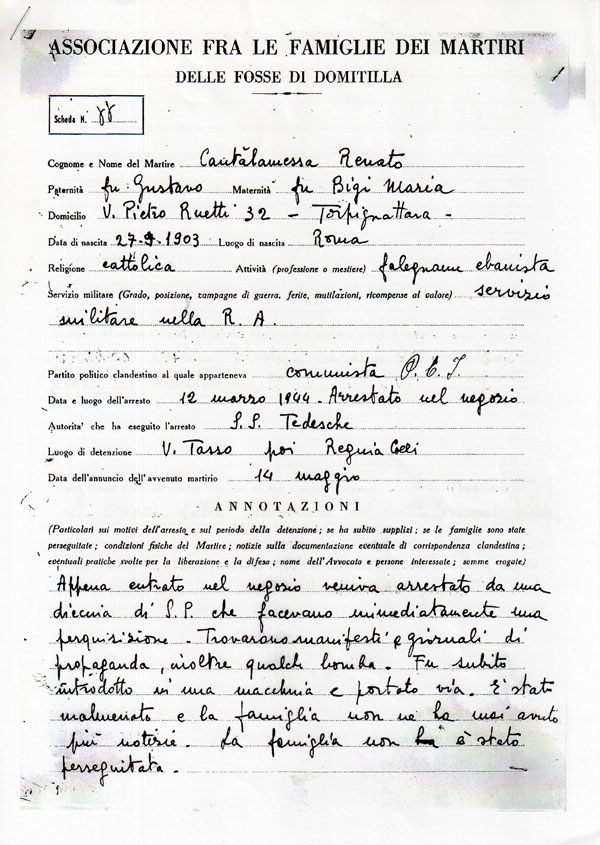 ASSOCIAZIONE FRA LE FAMIGLIE DEI MARTIRI
DELLE FOSSE DI DOMITILLA
Scheda N.
Cognome e Nome del Martire Cantalamessa Renato
Paternità fu Gustavo Maternità fu Bigi Maria
Domicilio V. Pietro Ruetti 32 - Torpignattara -
Data di nascita 27-9-1903 Luogo di nascita Roma
Religione cattolica Attività (professione o mestiere) falegname ebanista
Servizio militare (Grado, posizione, campagne di guerra, ferite, mutilazioni, ricompense al valore) servizio
militare nella R. A.
Partito politico clandestino al quale apparteneva comunista P. C. I.
Data e luogo dell'arresto 12 marzo 1944 - Arrestato nel negozio
Autorita' che ha eseguito l'arresto S.S. Tedesche
Luogo di detenzione V. Tasso poi Regina Celi
Data dell'annuncio dell'avvenuto martirio 14 maggio
ANNOTAZIONI
(Particolari sui motivi dell'arresto e sul periodo della detenzione; se ha subito supplizi; se le famiglie sono state
perseguitate; condizioni fisiche del Martire; notizie sulla documentazione eventuale di corrispondenza clandestina;
eventuali pratiche svolte per la liberazione e la difesa; nome dell'Avvocato e persone interessate; somme erogate)
Appena entrato nel negozio veniva arrestato da una
diecina di S.P. che facevano immediatamente una
perquisizione. Trovarono manifesti e giornali di
propaganda, inoltre qualche bomba. Fu subito
introdotto in una macchina e portato via. E' stato
malmenato e la famiglia non ne ha mai avuto
più notizie. La famiglia non è stata
perseguitata.